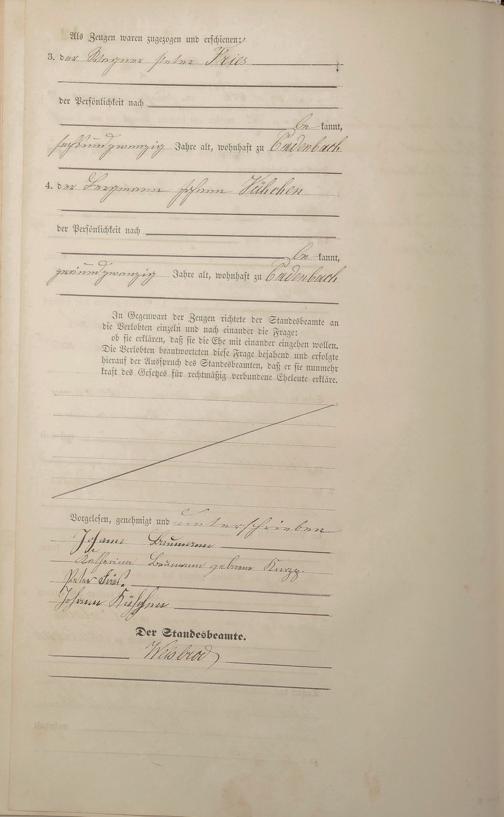 Als Zeugen waren zugezogen und erschienen:
3. der Wagner Peter Fries
der Persönlichkeit nach
be kannt,
sechsundzwanzig Jahre alt, wohnhaft zu Cadenbach
4. der Bergmann Johann
der Persönlichkeit nach
be kannt,
zweiundzwanzig Jahre alt, wohnhaft zu Cadenbach
In Gegenwart der Zeugen richtete der Standesbeamte an
die Verlobten einzeln und nach einander die Frage:
ob sie erklären, daß sie die Ehe mit einander eingehen wollen.
Die Verlobten beantworteten diese Frage bejahend und erfolgte
hierauf der Ausspruch des Standesbeamten, daß er sie nunmehr
kraft des Gesetzes für rechtmäßig verbundene Eheleute erkläre.
Vorgelesen, genehmigt und unterschrieben
Johann Baumann
Katharina Baumann geborne
Peter Fries
Johann
Der Standesbeamte.
Weisbrod